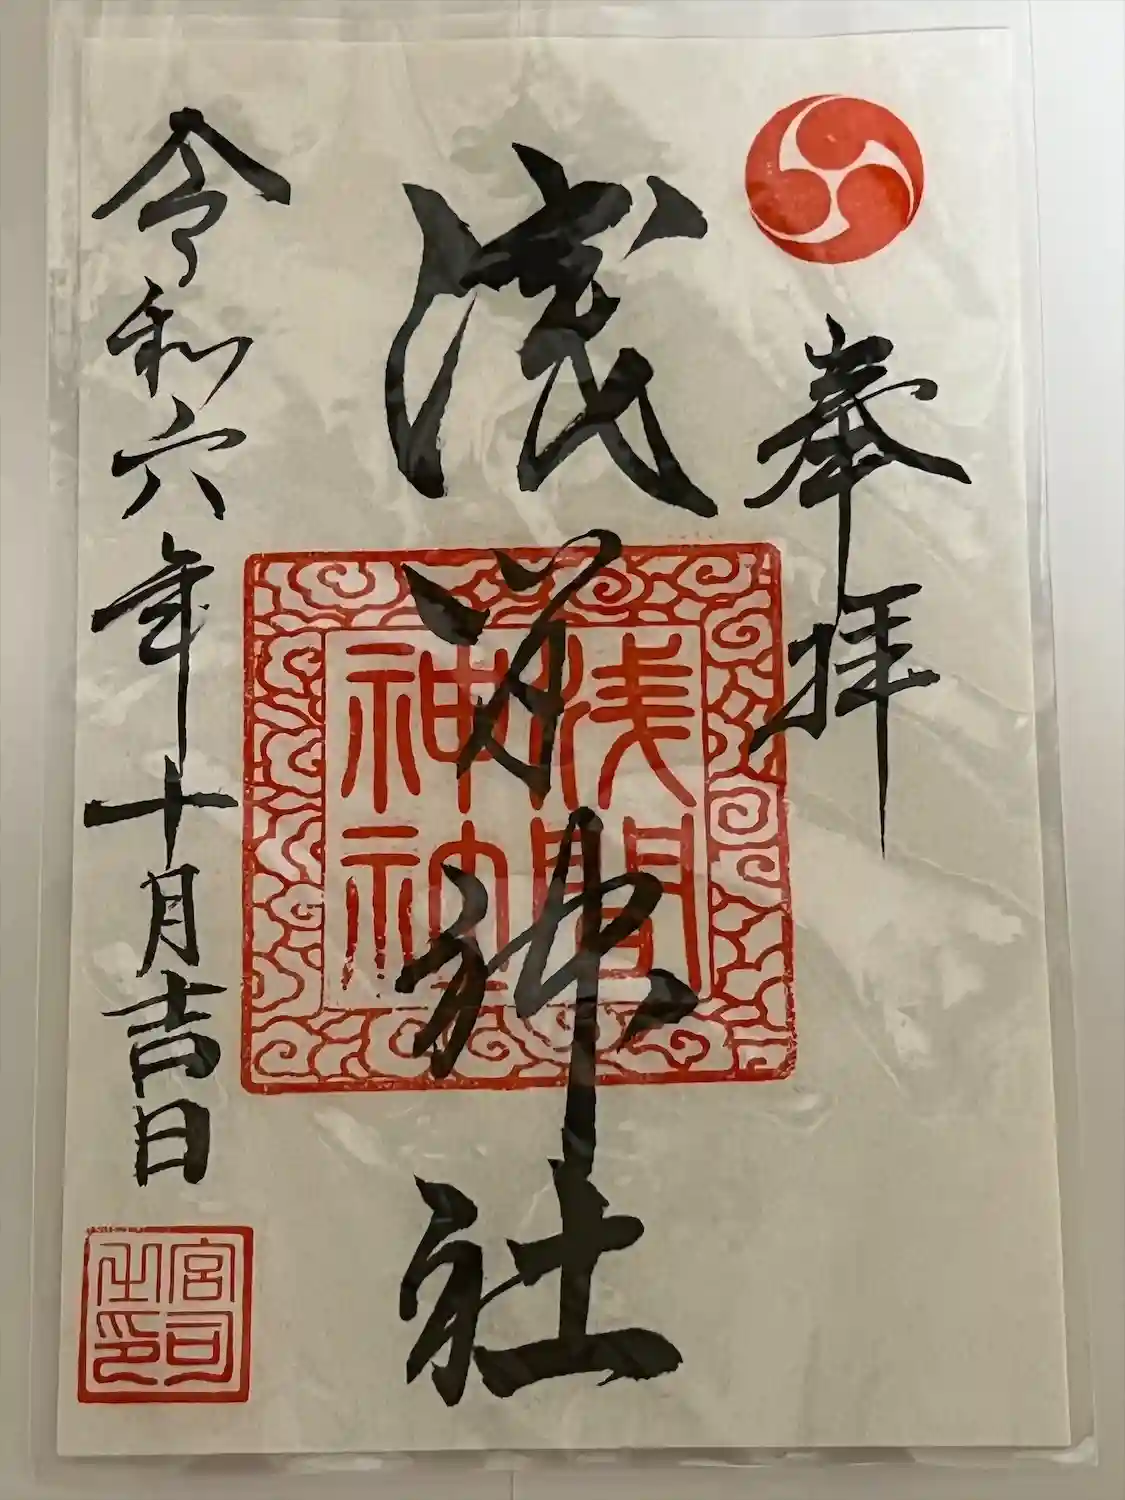 奉拝
浅間神社
浅間
神社
令和六年十月吉日
宮司
之印